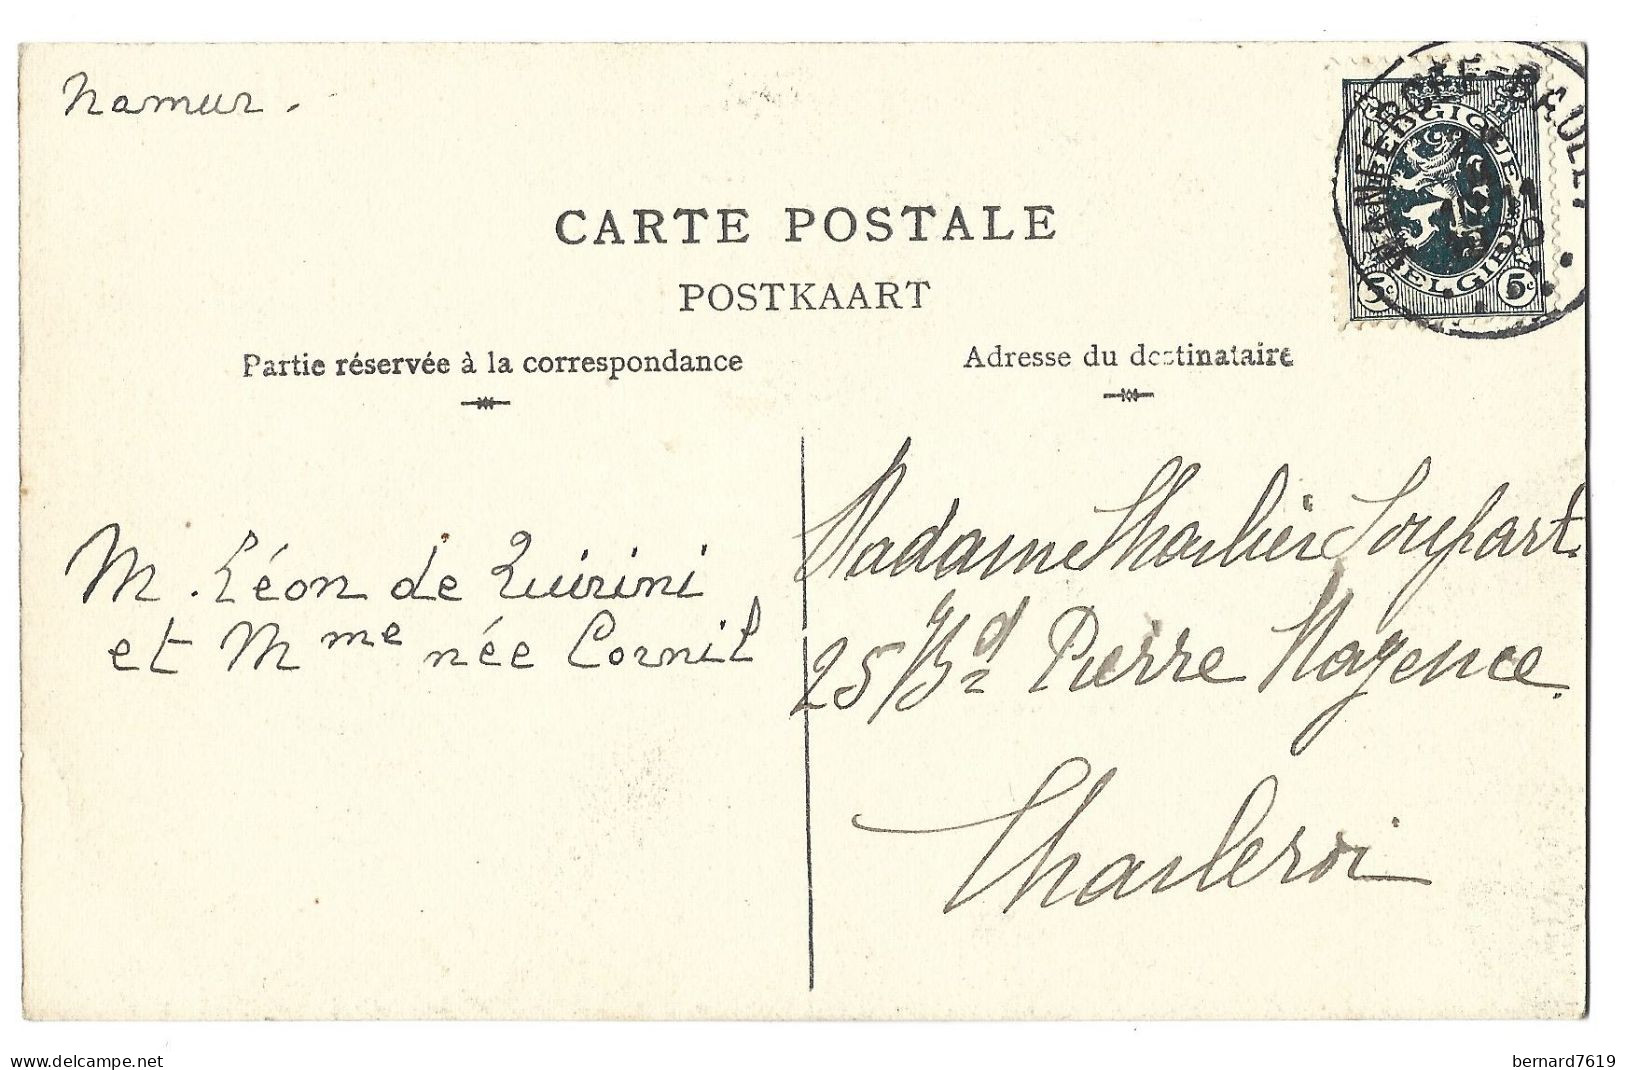 Namur.
CARTE POSTALE
POSTKAART
Partie réservée à la correspondance
Adresse du destinataire
BELGIQUE
BELGIË
5c 5c
1930
M. Léon de Quirini
et Mme née Cornil
Madame Charlier Soupart.
25 Bd Pierre Magence.
Charleroi
delcampe.net
bernard7619